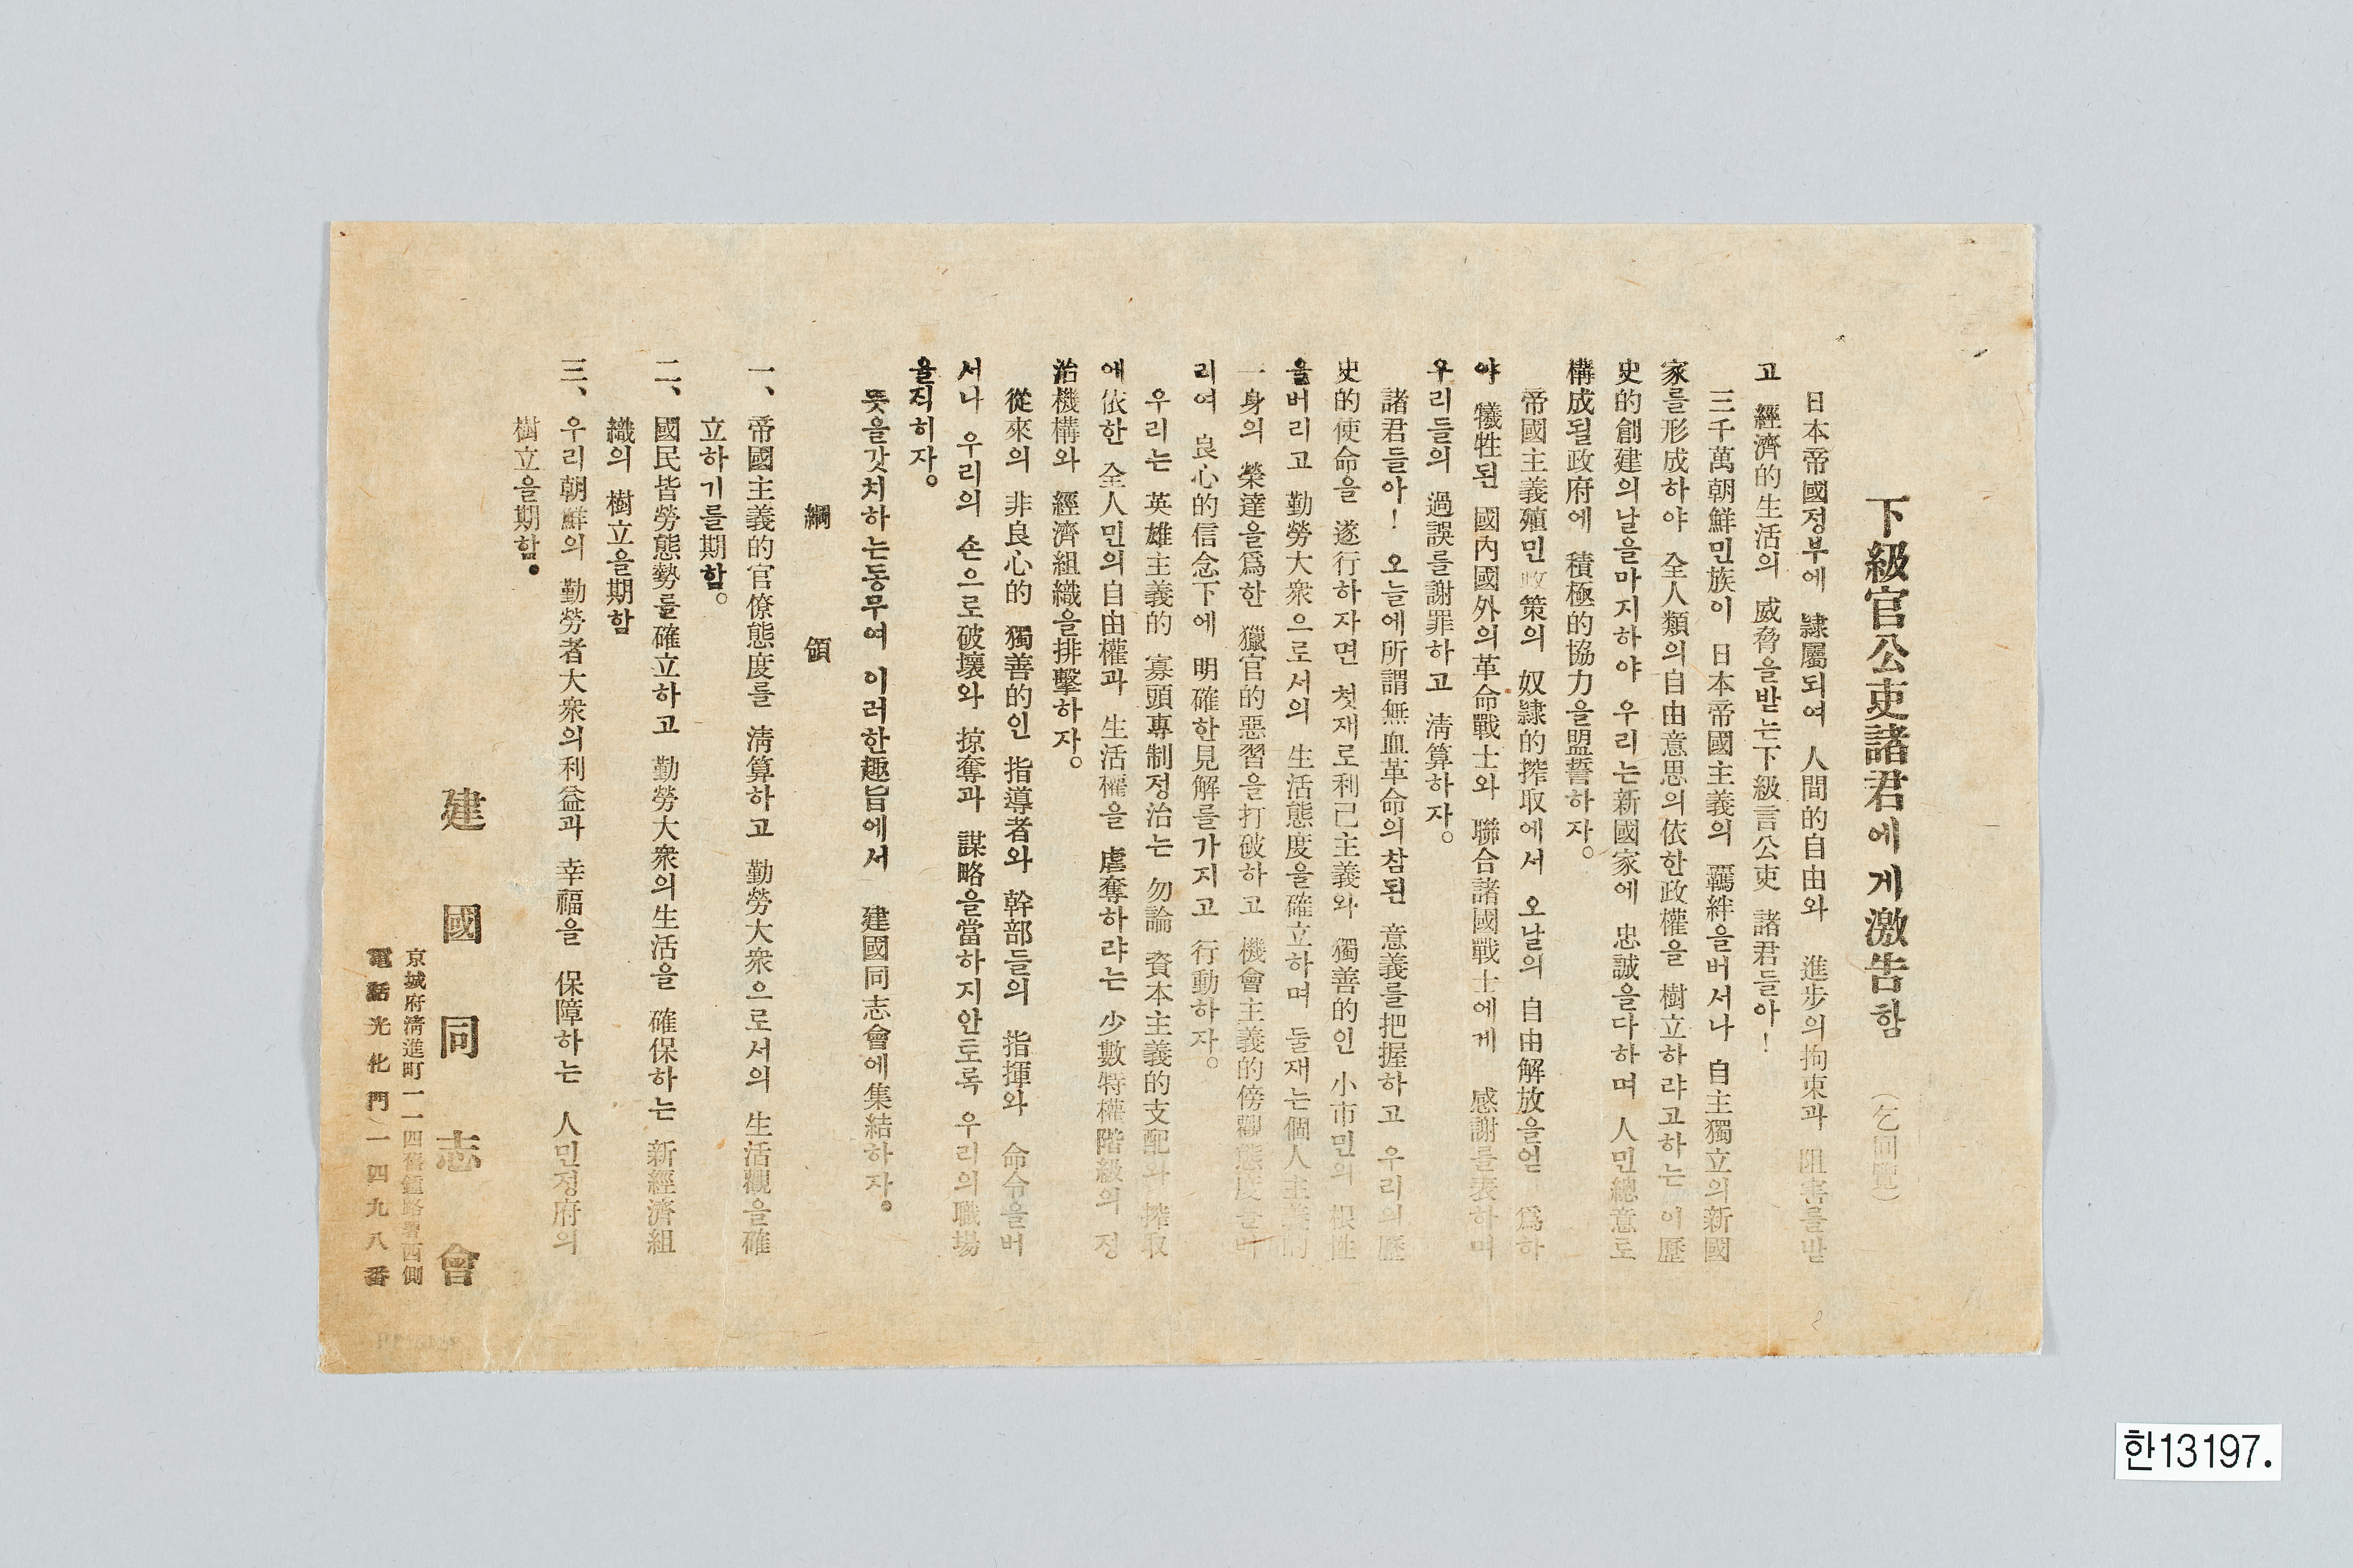 下級官公吏諸君에게激告함 (乞回覽)
日本帝國정부에 隷屬되여 人間的自由와 進步의拘束과 阻害를받
고 經濟的生活의 威脅을받는下級官公吏 諸君들아!
三千萬朝鮮민族이 日本帝國主義의 羈絆을버서나 自主獨立의新國
家를形成하야 全人類의自由意思의依한政權을 樹立하랴고하는 이歷
史的創建의날을마지하야 우리는新國家에 忠誠을다하며 人민總意로
構成될政府에 積極的協力을盟誓하자。
帝國主義殖민政策의 奴隷的搾取에서 오날의 自由解放을얻 爲하
야 犧牲된 國內國外의革命戰士와 聯合諸國戰士에게 感謝를表하며
우리들의 過誤를謝罪하고 淸算하자。
諸君들아! 오늘에所謂無血革命의참된 意義를把握하고 우리의歷
史的使命을 遂行하자면 첫재로利己主義와 獨善的인 小市민의 根性
을버리고 勤勞大衆으로서의 生活態度을確立하며 둘재는個人主義的
一身의 榮達을爲한 獵官的惡習을打破하고 機會主義的傍觀態度를버
리여 良心的信念下에 明確한見解를가지고 行動하자。
우리는 英雄主義的 寡頭專制정治는 勿論 資本主義的支配와 搾取
에依한 全人민의自由權과 生活權을 虐奪하랴는 少數特權階級의 정
治機構와 經濟組織을排擊하자。
從來의 非良心的 獨善的인 指導者와 幹部들의 指揮와 命令을버
서나 우리의 손으로破壞와 掠奪과 謀略을當하지안토록 우리의職場
을직히자。
뜻을갓치하는동무여 이러한趣旨에서 建國同志會에集結하자。
綱 領
一、帝國主義的官僚態度를 淸算하고 勤勞大衆으로서의 生活觀을確
立하기를期함。
二、國民皆勞態勢를確立하고 勤勞大衆의生活을 確保하는 新經濟組
織의 樹立을期함
三、우리朝鮮의 勤勞者大衆의利益과 幸福을 保障하는 人민정府의
樹立을期함。
建國同志會
京城府淸進町一一四舊鍾路署西側
電話光化門一四九八番
한13197.